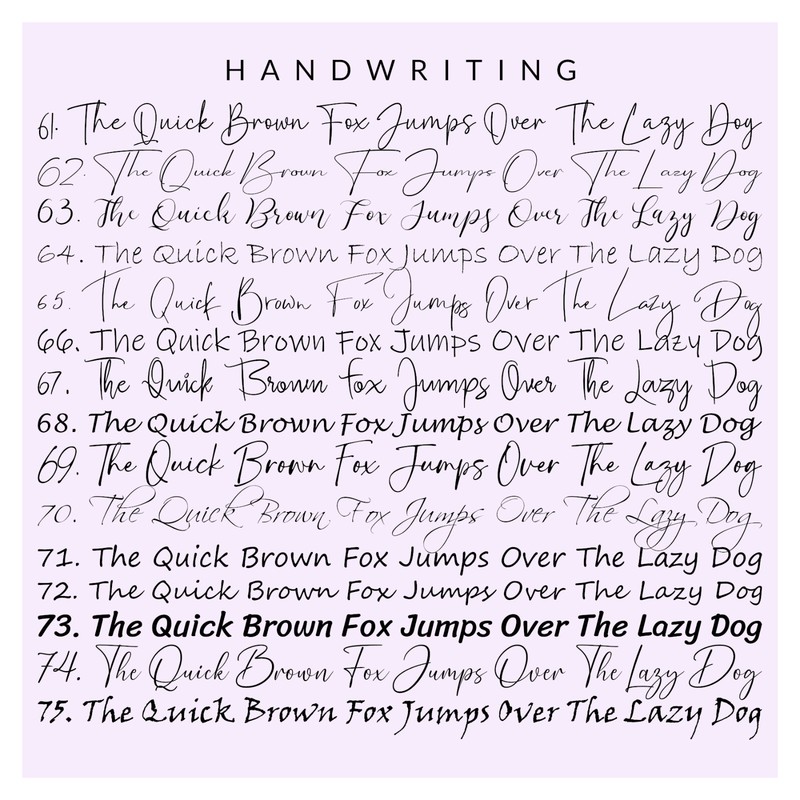 HANDWRITING
61. The Quick Brown Fox Jumps Over The Lazy Dog
62. The Quick Brown Fox Jumps Over The Lazy Dog
63. The Quick Brown Fox Jumps Over The Lazy Dog
64. The Quick Brown Fox Jumps Over The Lazy Dog
65. The Quick Brown Fox Jumps Over The Lazy Dog
66. The Quick Brown Fox Jumps Over The Lazy Dog
67. The Quick Brown Fox Jumps Over The Lazy Dog
68. The Quick Brown Fox Jumps Over The Lazy Dog
69. The Quick Brown Fox Jumps Over The Lazy Dog
70. The Quick Brown Fox Jumps Over The Lazy Dog
71. The Quick Brown Fox Jumps Over The Lazy Dog
72. The Quick Brown Fox Jumps Over The Lazy Dog
73. The Quick Brown Fox Jumps Over The Lazy Dog
74. The Quick Brown Fox Jumps Over The Lazy Dog
75. The Quick Brown Fox Jumps Over The Lazy Dog